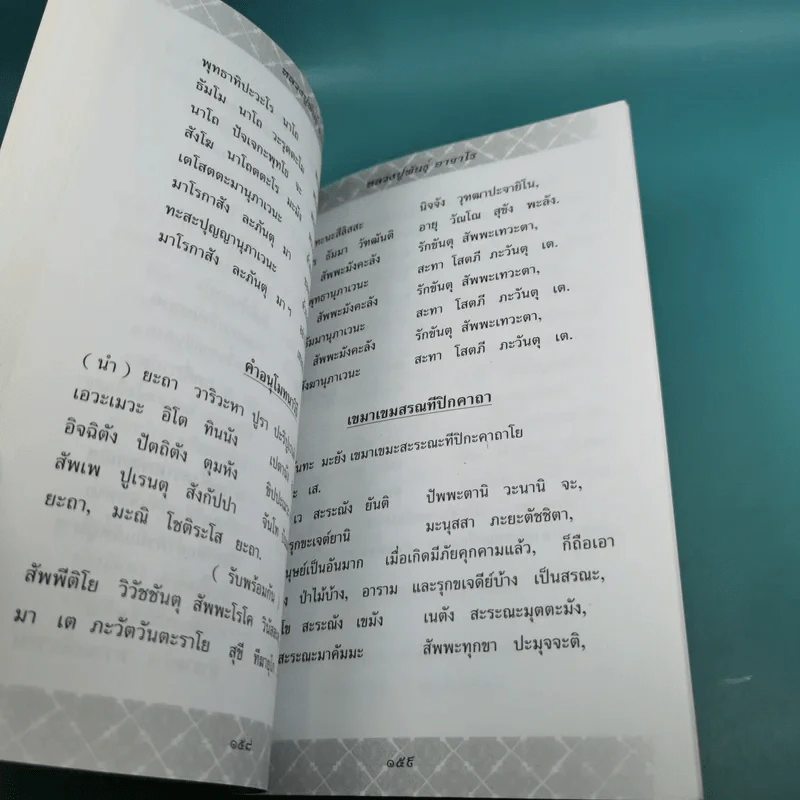 พุทธาทิปะวะโร นาโถ
ธัมโม นาโถ วะรุตตะโม
นาโถ ปัจเจกะพุทโธ จะ
สังโฆ นาโถตตะโร มะมัง
เตโสตตะมานุภาเวนะ
มาโรกาสัง ละภันตุ มา
ทะสะปุญญานุภาเวนะ
มาโรกาสัง ละภันตุ มาฯ
คำอนุโมทนา
( นำ ) ยะถา วาริวะหา ปูรา ปะริปูเรนติ
เอวะเมวะ อิโต ทินนัง เปตานัง
อิจฉิตัง ปัตถิตัง ตุมหัง ขิปปะเมวะ
สัพเพ ปูเรนตุ สังกัปปา จันโท
ยะถา, มะณิ โชติระโส ยะถา.
( รับพร้อมกัน )
สัพพีติโย วิวัชชันตุ สัพพะโรโค วินัสสะตุ
มา เต ภะวัตวันตะราโย สุขี ทีฆายุโก
๑๕๘
หลวงปู่พันธุ์ อาจาโร
ทะนะสีลิสสะ นิจจัง วุฑฒาปะจายิโน,
ธัมมา วัฑฒันติ อายุ วัณโณ สุขัง พะลัง.
สัพพะมังคะลัง รักขันตุ สัพพะเทวะตา,
พุทธานุภาเวนะ สะทา โสตถี ภะวันตุ เต.
สัพพะมังคะลัง รักขันตุ สัพพะเทวะตา,
ธัมมานุภาเวนะ สะทา โสตถี ภะวันตุ เต.
สัพพะมังคะลัง รักขันตุ สัพพะเทวะตา,
สังฆานุภาเวนะ สะทา โสตถี ภะวันตุ เต.
เขมาเขมสรณทีปิกคาถา
หันทะ มะยัง เขมาเขมะสะระณะทีปิกะคาถาโย
เส.
เว สะระณัง ยันติ ปัพพะตานิ วะนานิ จะ,
รุกขะเจต์ยานิ มะนุสสา ภะยะตัชชิตา,
มนุษย์เป็นอันมาก เมื่อเกิดมีภัยคุกคามแล้ว, ก็ถือเอา
ป่าไม้บ้าง, อาราม และรุกขเจดีย์บ้าง เป็นสรณะ,
โข สะระณัง เขมัง เนตัง สะระณะมุตตะมัง,
สะระณะมาคัมมะ สัพพะทุกขา ปะมุจจะติ,
๑๕๙